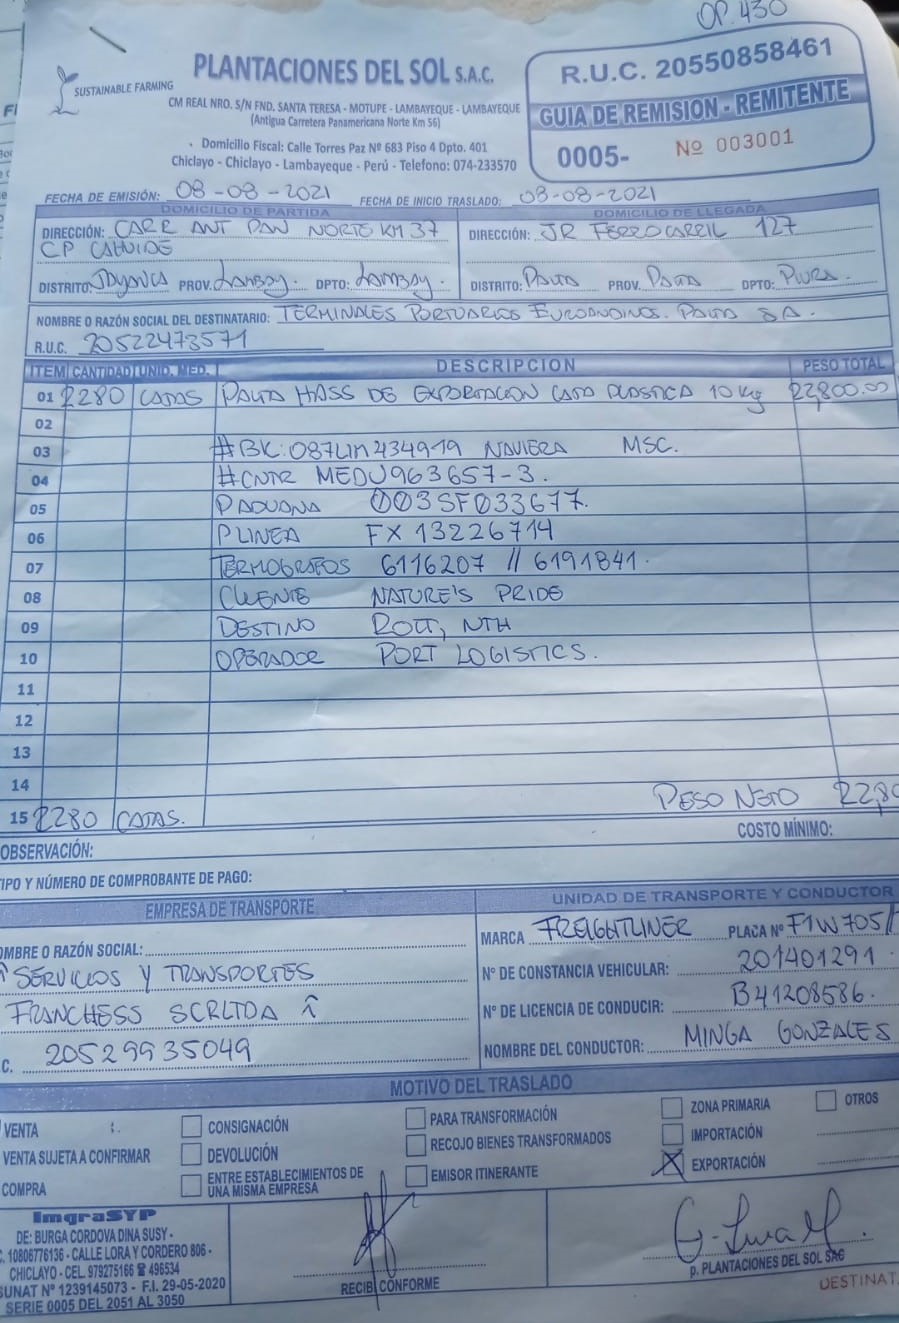 OP. 430
SUSTAINABLE FARMING
PLANTACIONES DEL SOL S.A.C.
CM REAL NRO. S/N FND. SANTA TERESA - MOTUPE - LAMBAYEQUE - LAMBAYEQUE
(Antigua Carretera Panamericana Norte Km 56)
Domicilio Fiscal: Calle Torres Paz Nº 683 Piso 4 Dpto. 401
Chiclayo - Chiclayo - Lambayeque - Perú - Telefono: 074-233570
R.U.C. 20550858461
GUIA DE REMISION - REMITENTE
0005- Nº 003001
FECHA DE EMISIÓN: 08-08-2021 FECHA DE INICIO TRASLADO: 08-08-2021
DOMICILIO DE PARTIDA DOMICILIO DE LLEGADA
DIRECCIÓN: CARR ANT PAN NORTE KM 37 DIRECCIÓN: JR FERROCARRIL 127
CP CAHUIDE
DISTRITO: Jayanca PROV. Lambay. DPTO: Lambay. DISTRITO: Paita PROV. Paita DPTO: Piura.
NOMBRE O RAZÓN SOCIAL DEL DESTINATARIO: TERMINALES PORTUARIOS EUROANDINOS. PAITA SA.
R.U.C. 20522473571
ITEM CANTIDAD UNID. MED. DESCRIPCION PESO TOTAL
01 2280 CAJAS PALTA HASS DE EXPORTACION CAJA PLASTICA 10 Kg 22,800.00
02
03 #BK: 087LIM234919 NAVIERA MSC.
04 #CNTR MEDU963657-3.
05 P ADUANA 003SF033677.
06 P LINEA FX 13226714
07 TERMOGRAFOS 6116207 // 6191841.
08 CLIENTE NATURE'S PRIDE
09 DESTINO ROTT, NTH
10 OPERADOR PORT LOGISTICS.
11
12
13
14 PESO NETO 22,80
15 2280 CAJAS.
COSTO MÍNIMO:
OBSERVACIÓN:
IPO Y NÚMERO DE COMPROBANTE DE PAGO:
EMPRESA DE TRANSPORTE UNIDAD DE TRANSPORTE Y CONDUCTOR
OMBRE O RAZÓN SOCIAL: MARCA FREIGHTLINER PLACA Nº F1W705//
SERVICIOS Y TRANSPORTES Nº DE CONSTANCIA VEHICULAR: 201401291.
FRANCHESS SCRLTDA Nº DE LICENCIA DE CONDUCIR: B41208586.
C. 20529935049 NOMBRE DEL CONDUCTOR: MINGA GONZALES
MOTIVO DEL TRASLADO
VENTA CONSIGNACIÓN PARA TRANSFORMACIÓN ZONA PRIMARIA OTROS
VENTA SUJETA A CONFIRMAR DEVOLUCIÓN RECOJO BIENES TRANSFORMADOS IMPORTACIÓN
COMPRA ENTRE ESTABLECIMIENTOS DE UNA MISMA EMPRESA EMISOR ITINERANTE EXPORTACIÓN
ImgraSYP
DE: BURGA CORDOVA DINA SUSY -
C. 10806776136 - CALLE LORA Y CORDERO 806 -
CHICLAYO - CEL. 979275166 ☎ 496534
SUNAT Nº 1239145073 - F.I. 29-05-2020
SERIE 0005 DEL 2051 AL 3050
RECIBI CONFORME
p. PLANTACIONES DEL SOL SAC
DESTINAT